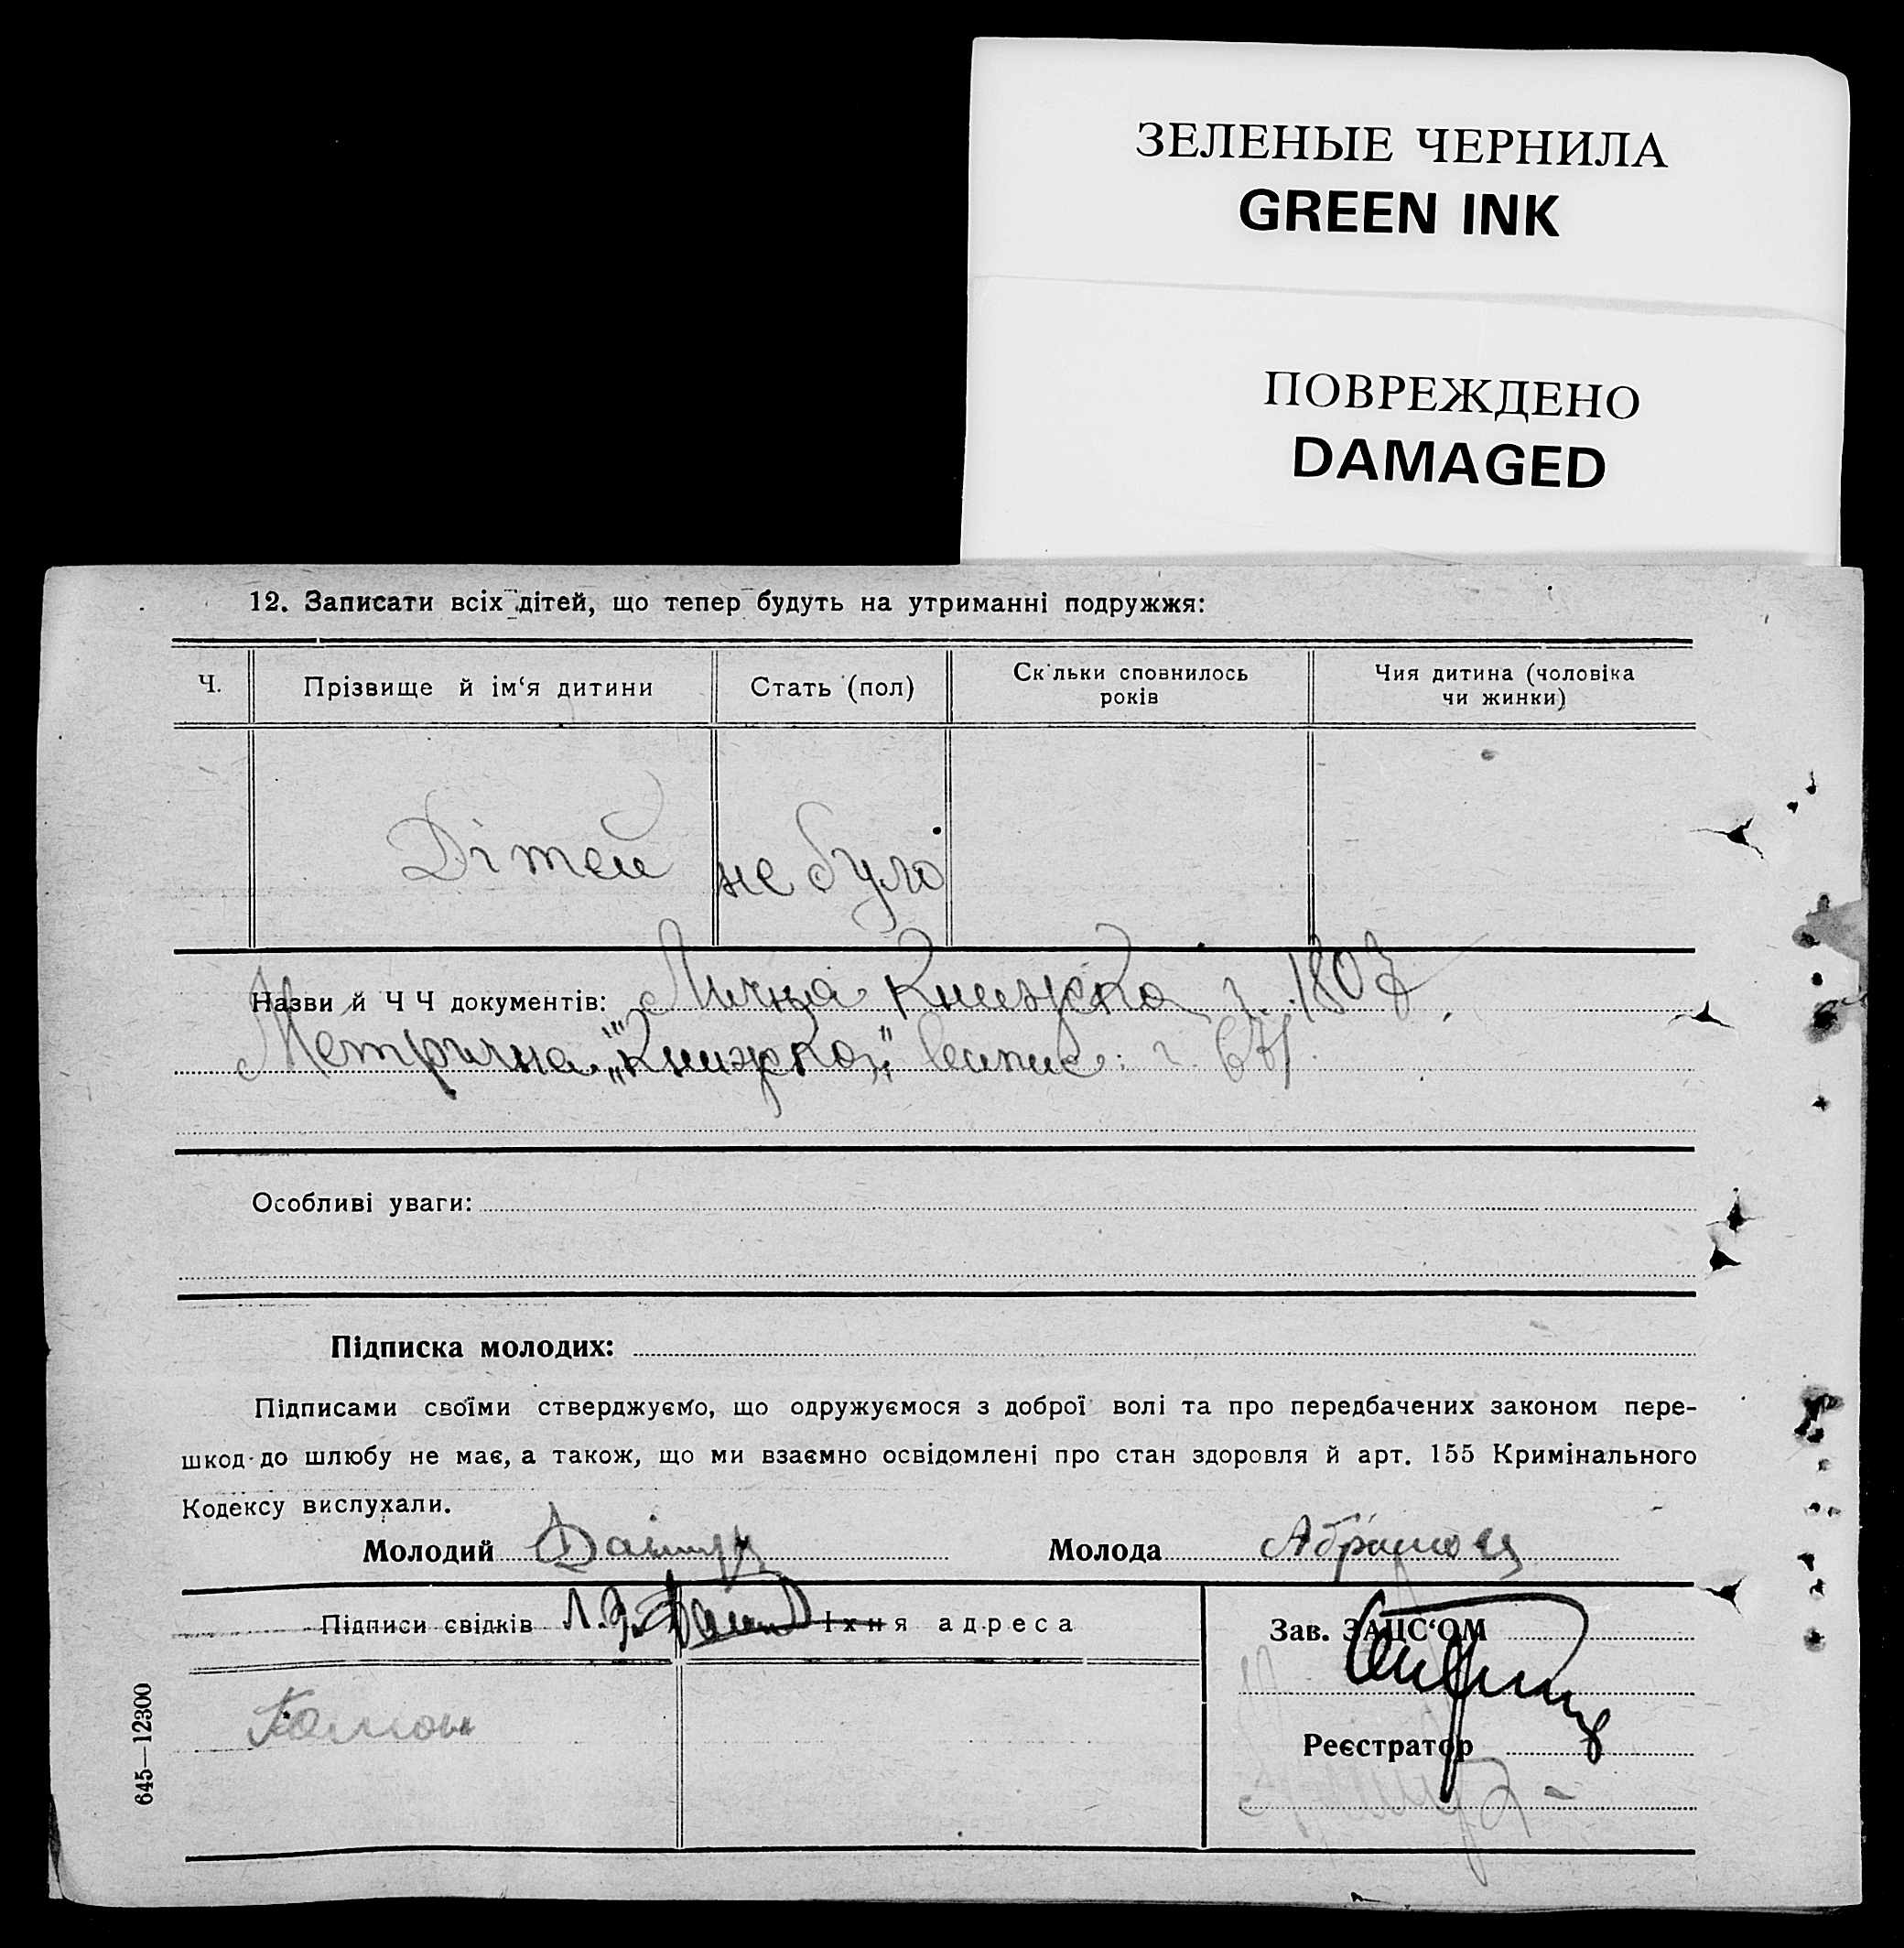 ЗЕЛЕНЫЕ ЧЕРНИЛА
GREEN INK
ПОВРЕЖДЕНО
DAMAGED
12. Записати всіх дітей, що тепер будуть на утриманні подружжя:
Ч. Прізвище й ім‘я дитини Стать (пол) Скільки сповнилось років Чия дитина (чоловіка чи жинки)
Дітей не було
Назви й Ч Ч документів: Лична Книжка г. 1807
Метрична „Книжка“
Особливі уваги:
Підписка молодих:
Підписами своїми стверджуємо, що одружуємося з доброї волі та про передбачених законом пере-
шкод до шлюбу не має, а також, що ми взаємно освідомлені про стан здоровля й арт. 155 Кримінального
Кодексу вислухали.
Молодий Молода
Підписи свідків Їхня адреса Зав. ЗАПС‘ОМ
Реєстратор
645—12300